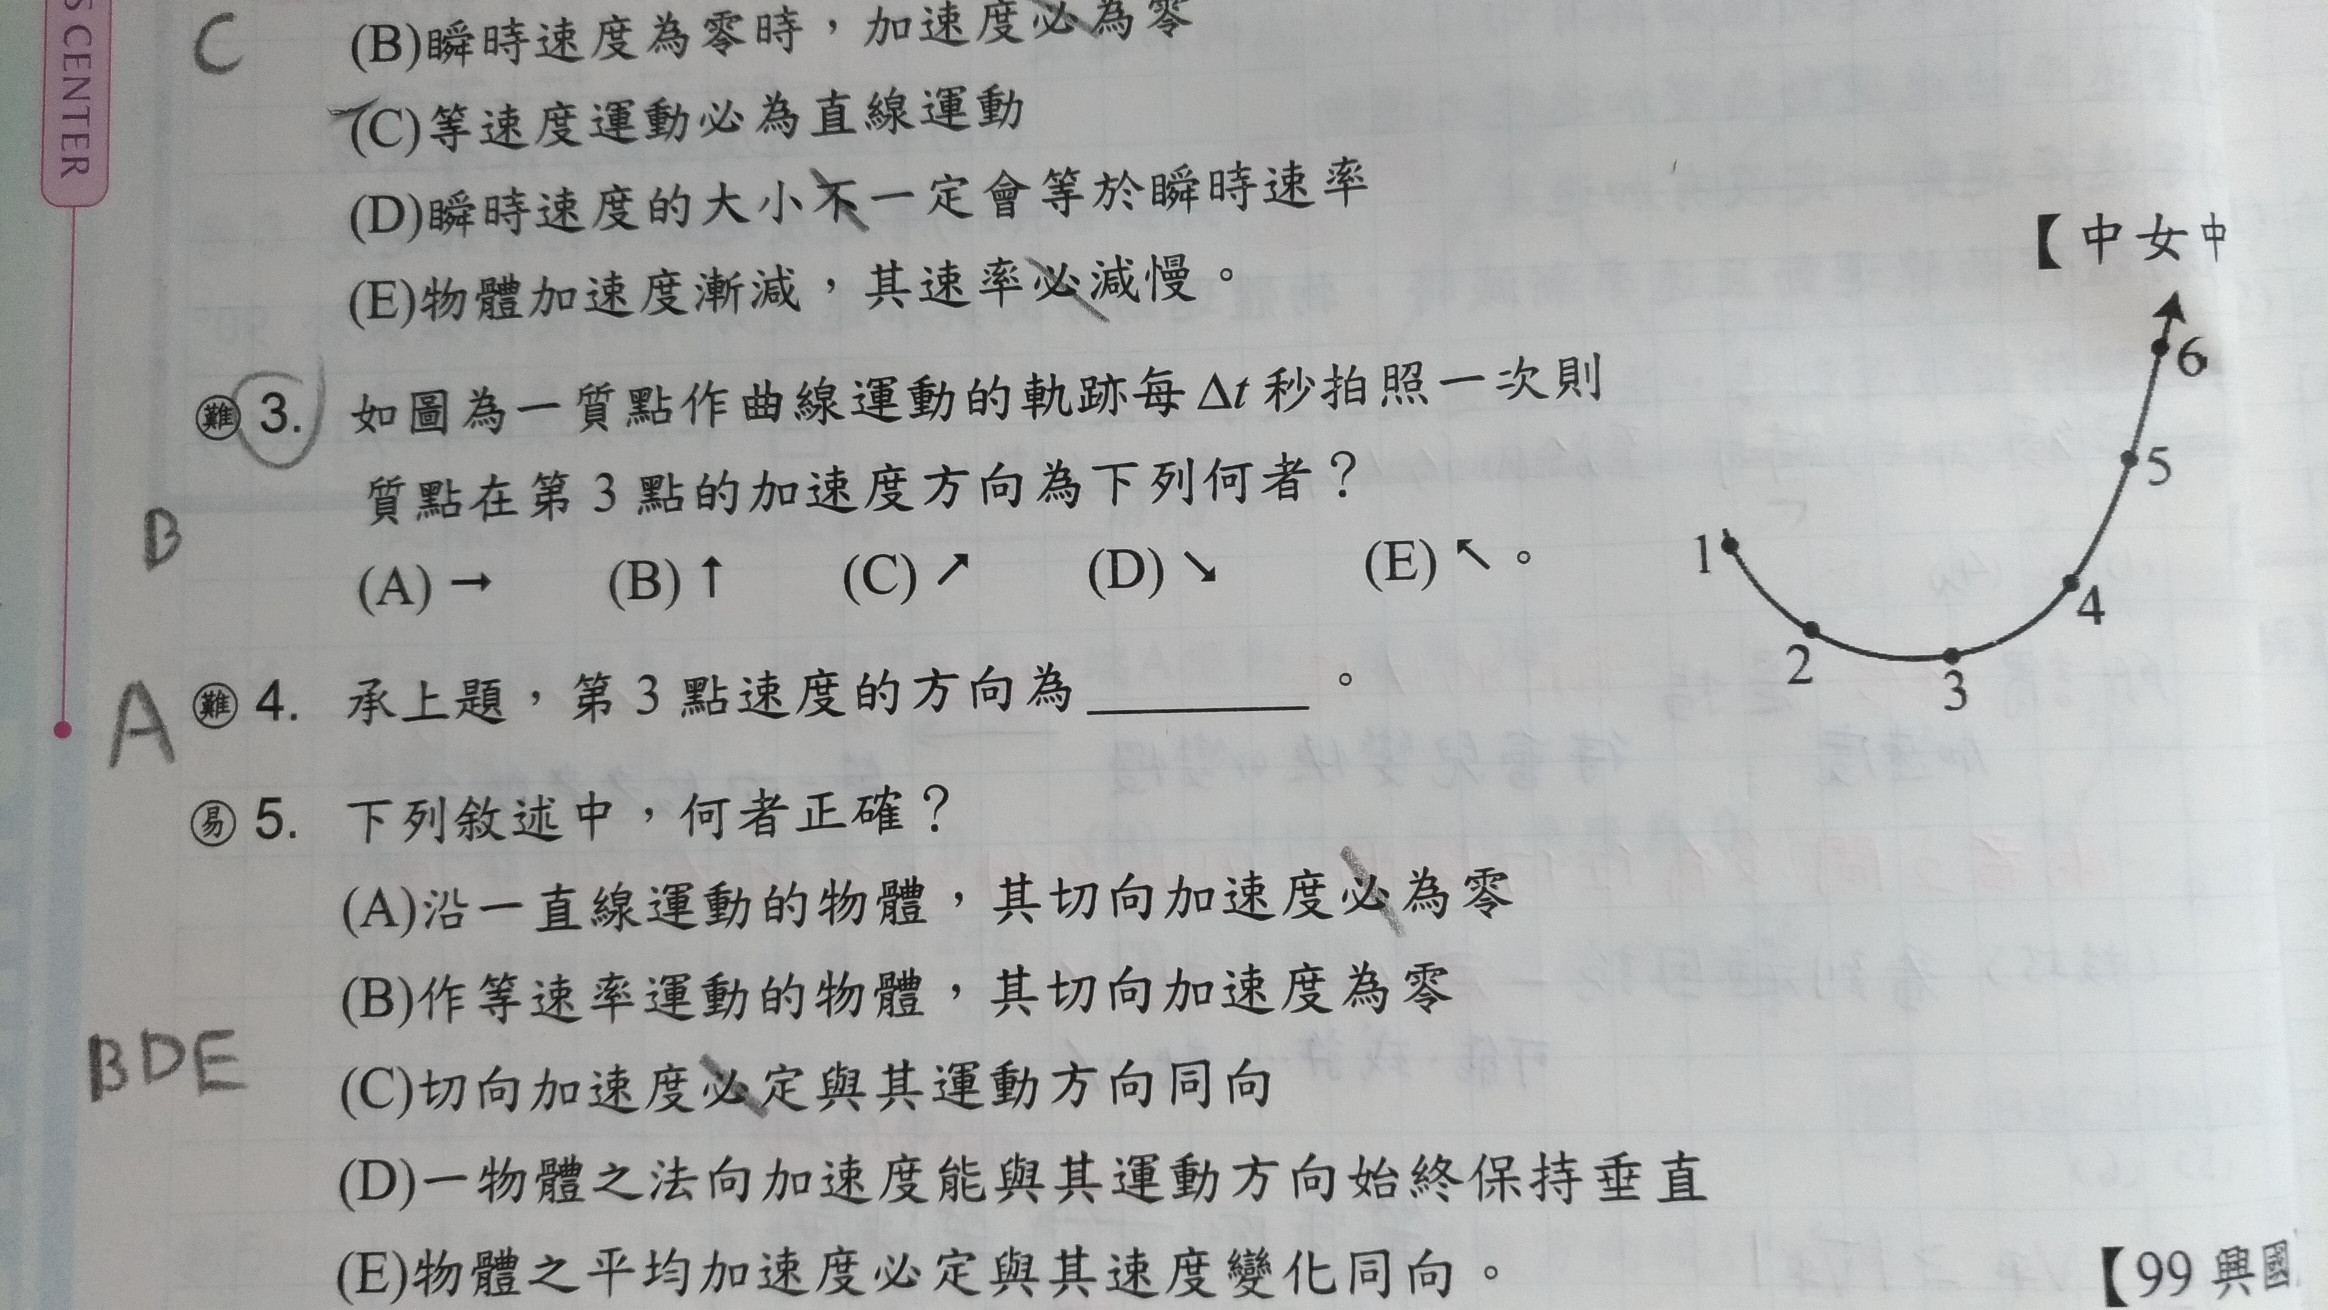 S CENTER
C
(B)瞬時速度為零時，加速度必為零
(C)等速度運動必為直線運動
(D)瞬時速度的大小不一定會等於瞬時速率
(E)物體加速度漸減，其速率必減慢。
【中女中
難 3. 如圖為一質點作曲線運動的軌跡每 Δt 秒拍照一次則
質點在第 3 點的加速度方向為下列何者？
B
(A)→ (B)↑ (C)↗ (D)↘ (E)↖。
1
2
3
4
5
6
A
難 4. 承上題，第 3 點速度的方向為________。
易 5. 下列敘述中，何者正確？
(A)沿一直線運動的物體，其切向加速度必為零
(B)作等速率運動的物體，其切向加速度為零
BDE
(C)切向加速度必定與其運動方向同向
(D)一物體之法向加速度能與其運動方向始終保持垂直
(E)物體之平均加速度必定與其速度變化同向。
【99 興國